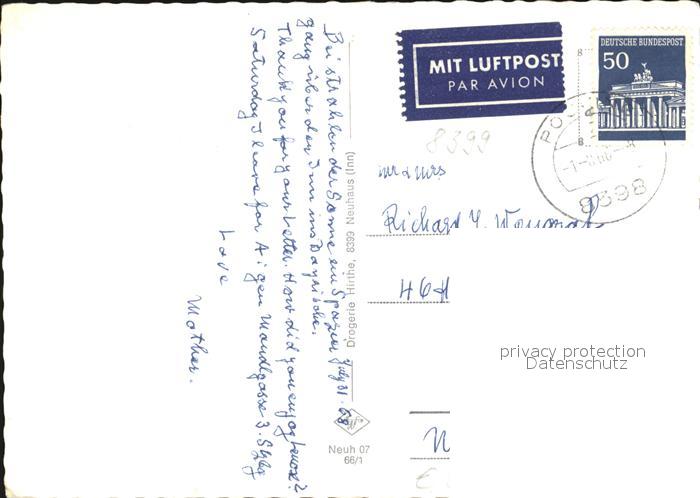 July 31. 68
Bei strahlender Sonne ein Spazier
gang über den Inn ins Bayrische.
Thank you for your Letter. How did you enjoy
Saturday I leave for Aigen Mandlgasse 3. Szbg
Love
Mother.
Drogerie Hirthe, 8399 Neuhaus (Inn)
Neuh 07
66/1
MIT LUFTPOST
PAR AVION
DEUTSCHE BUNDESPOST
50
8398
8399
Mr & Mrs
Richard
464
N
privacy protection
Datenschutz